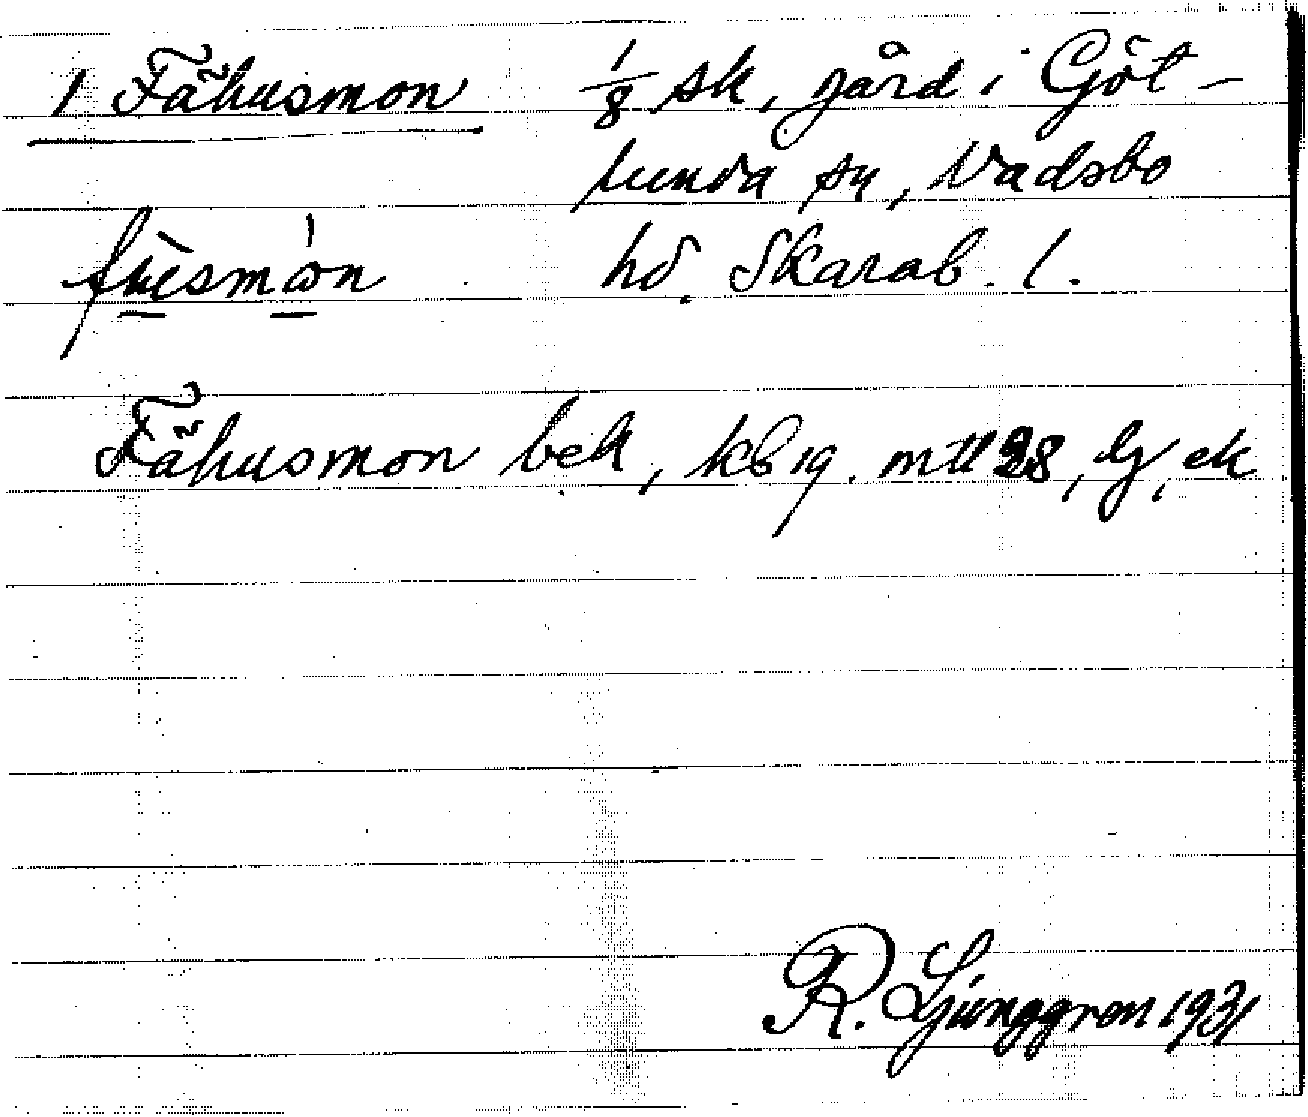 1 Fähusmon 1/8 sk, gård i Göt-
lunda sn, Vadsbo
hd. Skarab. l.
Fähusmon bek, kb 19. mtl 28, Lg, ek
R. Ljunggren 1931